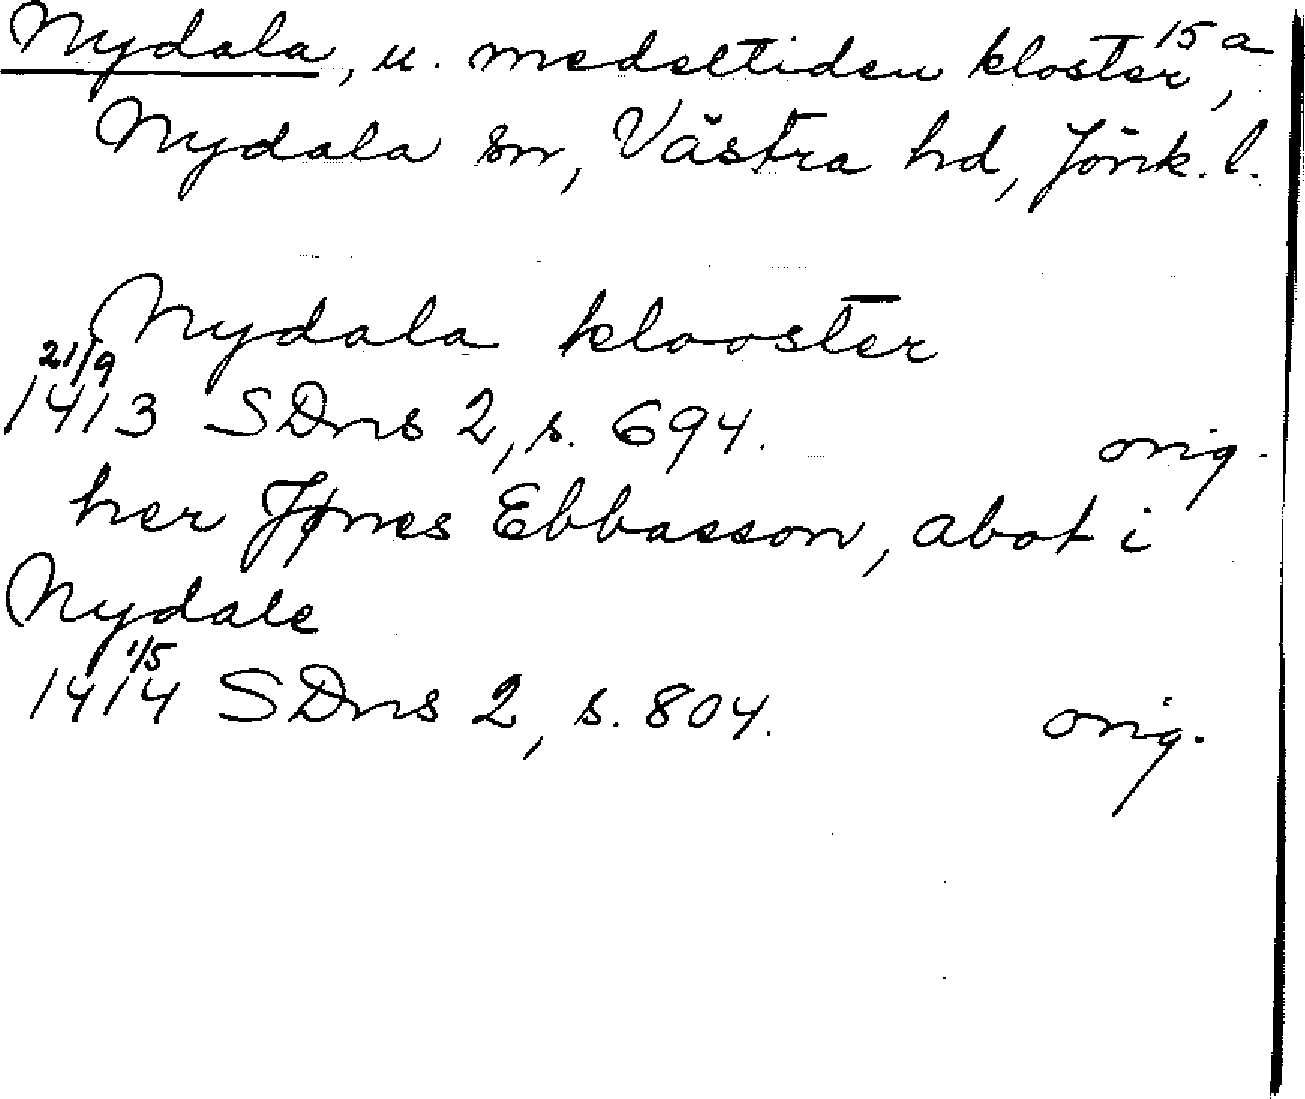 Nydala, u. medeltiden kloster, 15 a
Nydala sn, Västra hd, Jönk. l.
Nydala klooster
21/9
1413 SDns 2, s. 694. orig.
her Jønes Ebbasson, abot i
Nydale
1/5
1414 SDns 2, s. 804. orig.